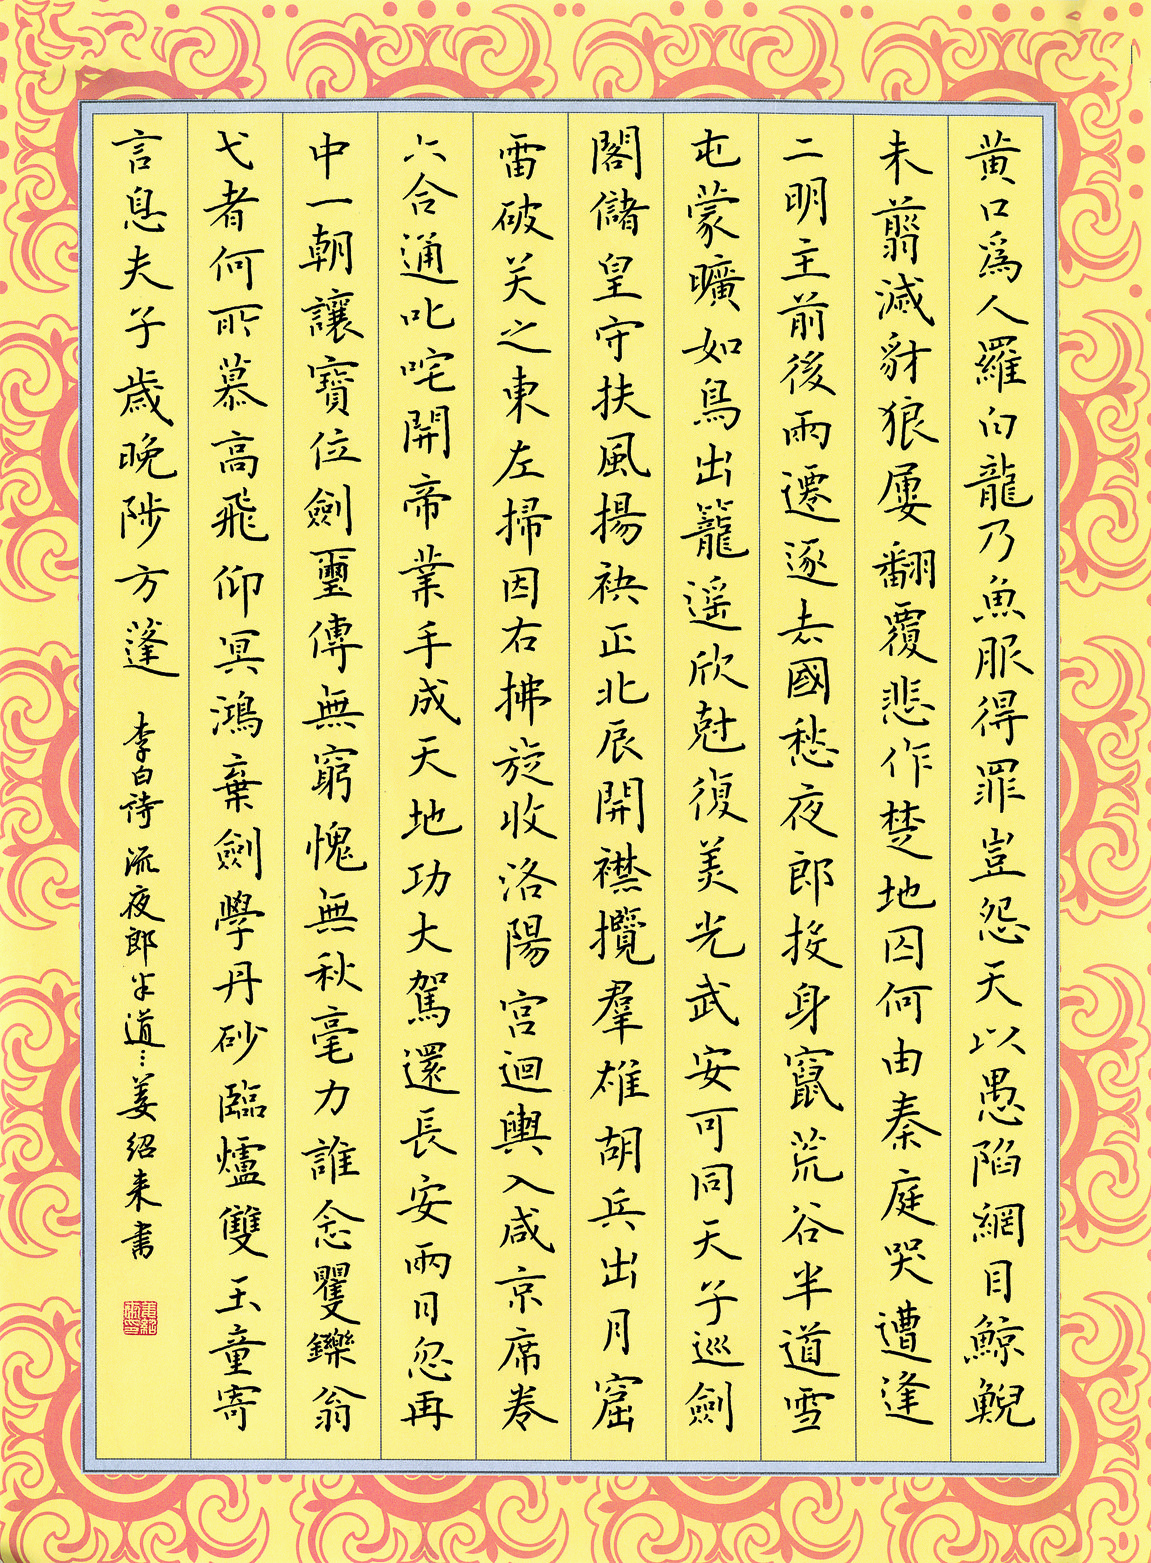 黄口爲人羅白龍乃魚服得罪豈怨天以愚陷網目鯨鯢
未翦滅豺狼屢翻覆悲作楚地囚何由秦庭哭遭逢
二明主前後兩遷逐去國愁夜郎投身竄荒谷半道雪
屯蒙曠如鳥出籠遥欣尅復美光武安可同天子巡劍
閣儲皇守扶風揚袂正北辰開襟攬羣雄胡兵出月窟
雷破关之東左掃因右拂旋收洛陽宫迴輿入咸京席卷
六合通叱咤開帝業手成天地功大駕還長安兩日忽再
中一朝讓寶位劍璽傳無窮愧無秋毫力誰念矍鑠翁
弋者何所慕高飛仰冥鴻棄劍學丹砂臨爐雙玉童寄
言息夫子歲晚陟方蓬 李白詩 流夜郎半道… 姜紹来書